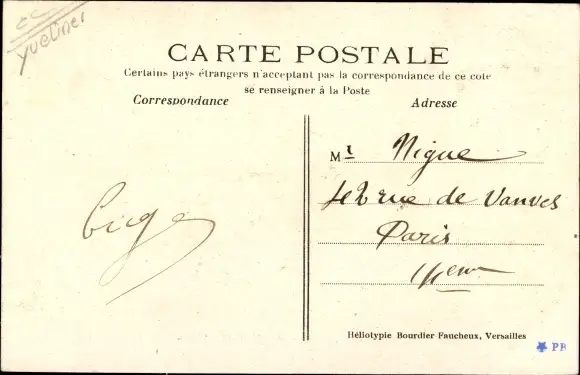 Yvelines
CARTE POSTALE
Certains pays étrangers n'acceptant pas la correspondance de ce coté
se renseigner à la Poste
Correspondance
Adresse
Mr Nigue
rue de Vanves
Paris
14eme
Héliotypie Bourdier-Faucheux, Versailles
PR